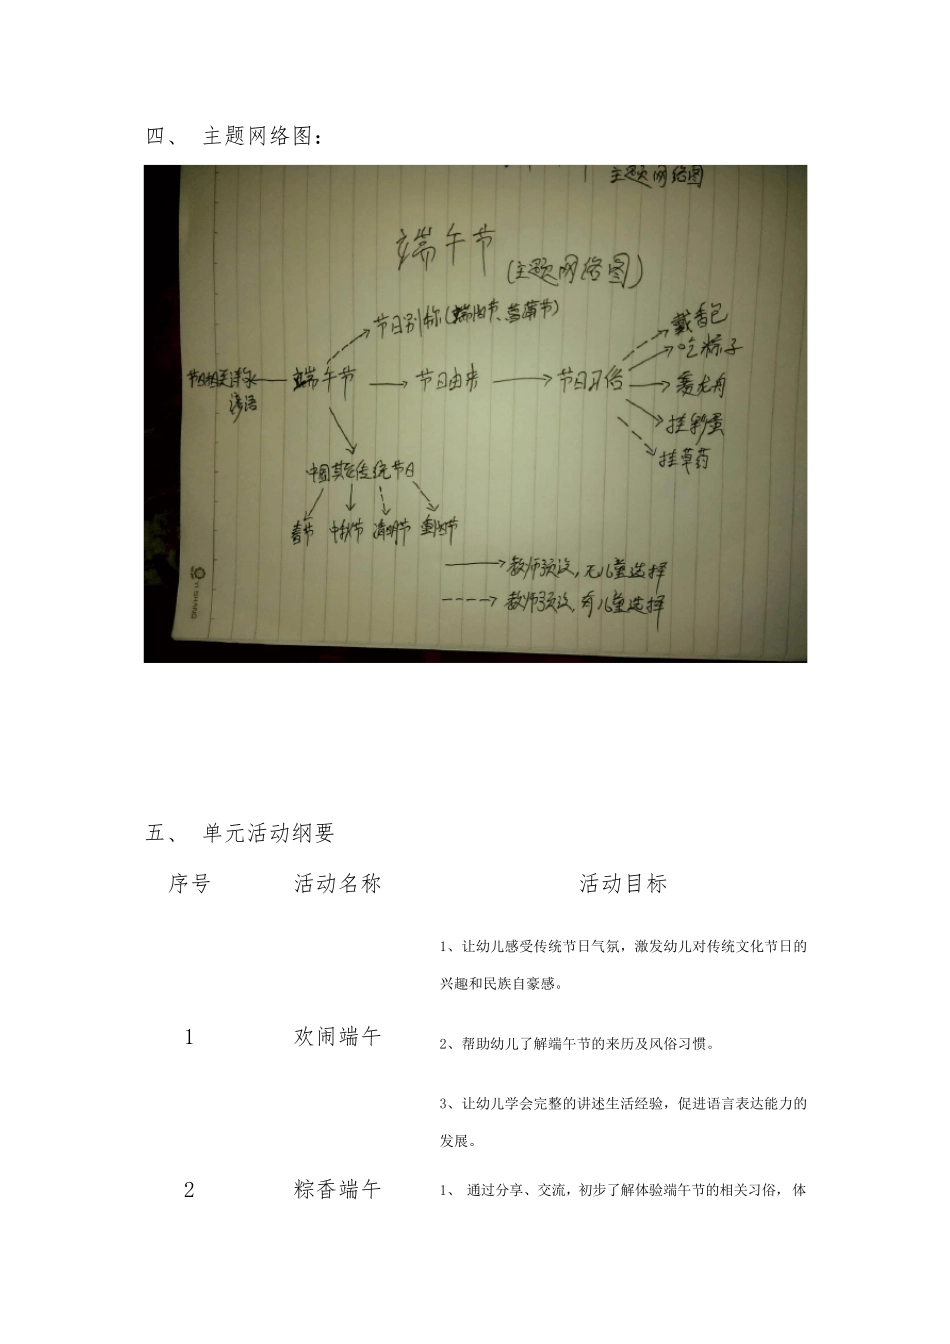 四、 主题网络图：
主题网络图
端午节
(主题网络图)
节日别称(端阳节、菖蒲节)
戴香包
吃粽子
节日相关
端午节
节日由来
节日习俗
赛龙舟
挂彩蛋
挂草药
中国其它传统节日
春节 中秋节 清明节 重阳节
教师预设,无儿童选择
教师预设,有儿童选择
YISHANG
五、 单元活动纲要
序号 活动名称 活动目标
1、让幼儿感受传统节日气氛，激发幼儿对传统文化节日的
兴趣和民族自豪感。
1 欢闹端午 2、帮助幼儿了解端午节的来历及风俗习惯。
3、让幼儿学会完整的讲述生活经验，促进语言表达能力的
发展。
2 粽香端午 1、 通过分享、交流，初步了解体验端午节的相关习俗，体